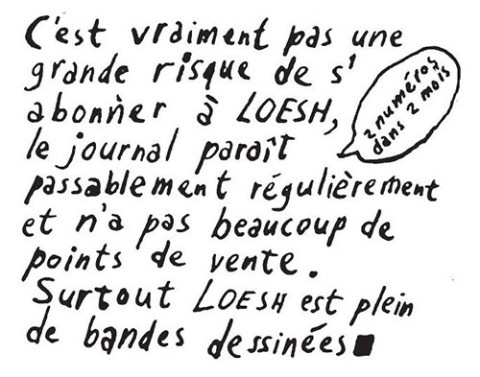 C'est vraiment pas une
grande risque de s'
abonner à LOESH,
le journal paraît
passablement régulièrement
et n'a pas beaucoup de
points de vente.
Surtout LOESH est plein
de bandes dessinées
2 numéros
dans 2 mois